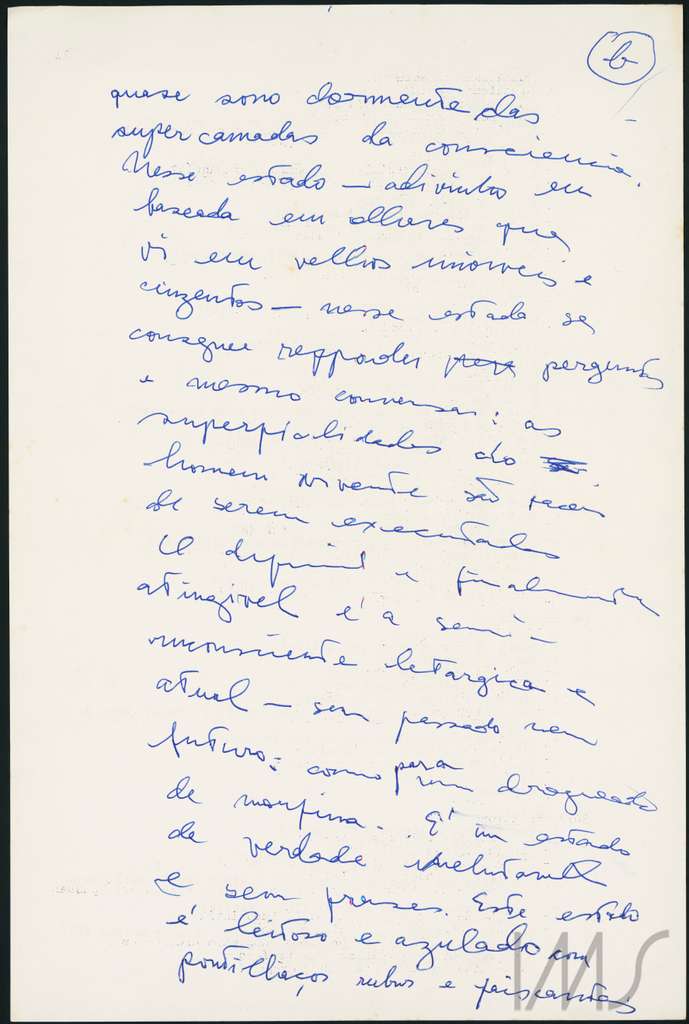 b
quase sono dormente das
super camadas da consciencia.
Nesse estado — adivinho eu
baseada em olhares que
vi em velhos imoveis e
cinzentos — nesse estado se
consegue responder perguntas
e mesmo conversar: as
superficialidades do
homem vivente são faceis
de serem executadas
O e finalmente
atingivel é a semi-
inconsciente letargica e
atual — sem passado nem
futuro: como para um drogado
de morfina. É um estado
de verdade inelutavel
e sem frases. Este estado
é leitoso e azulado com
pontilhaços rubros e faiscantes
IMS